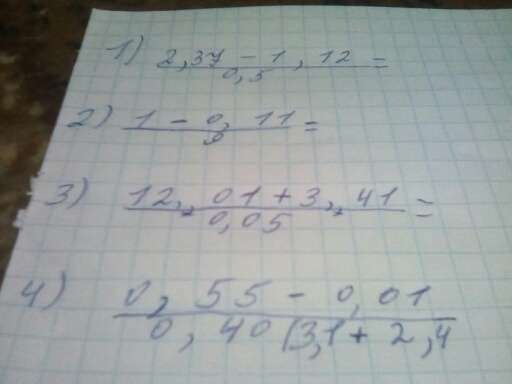 1) 2,37 - 1,12 =
0,5
2) 1 - 0,11 =
9
3) 12,01 + 3,41 =
0,05
4) 0,55 - 0,01
0,40(3,1 + 2,4